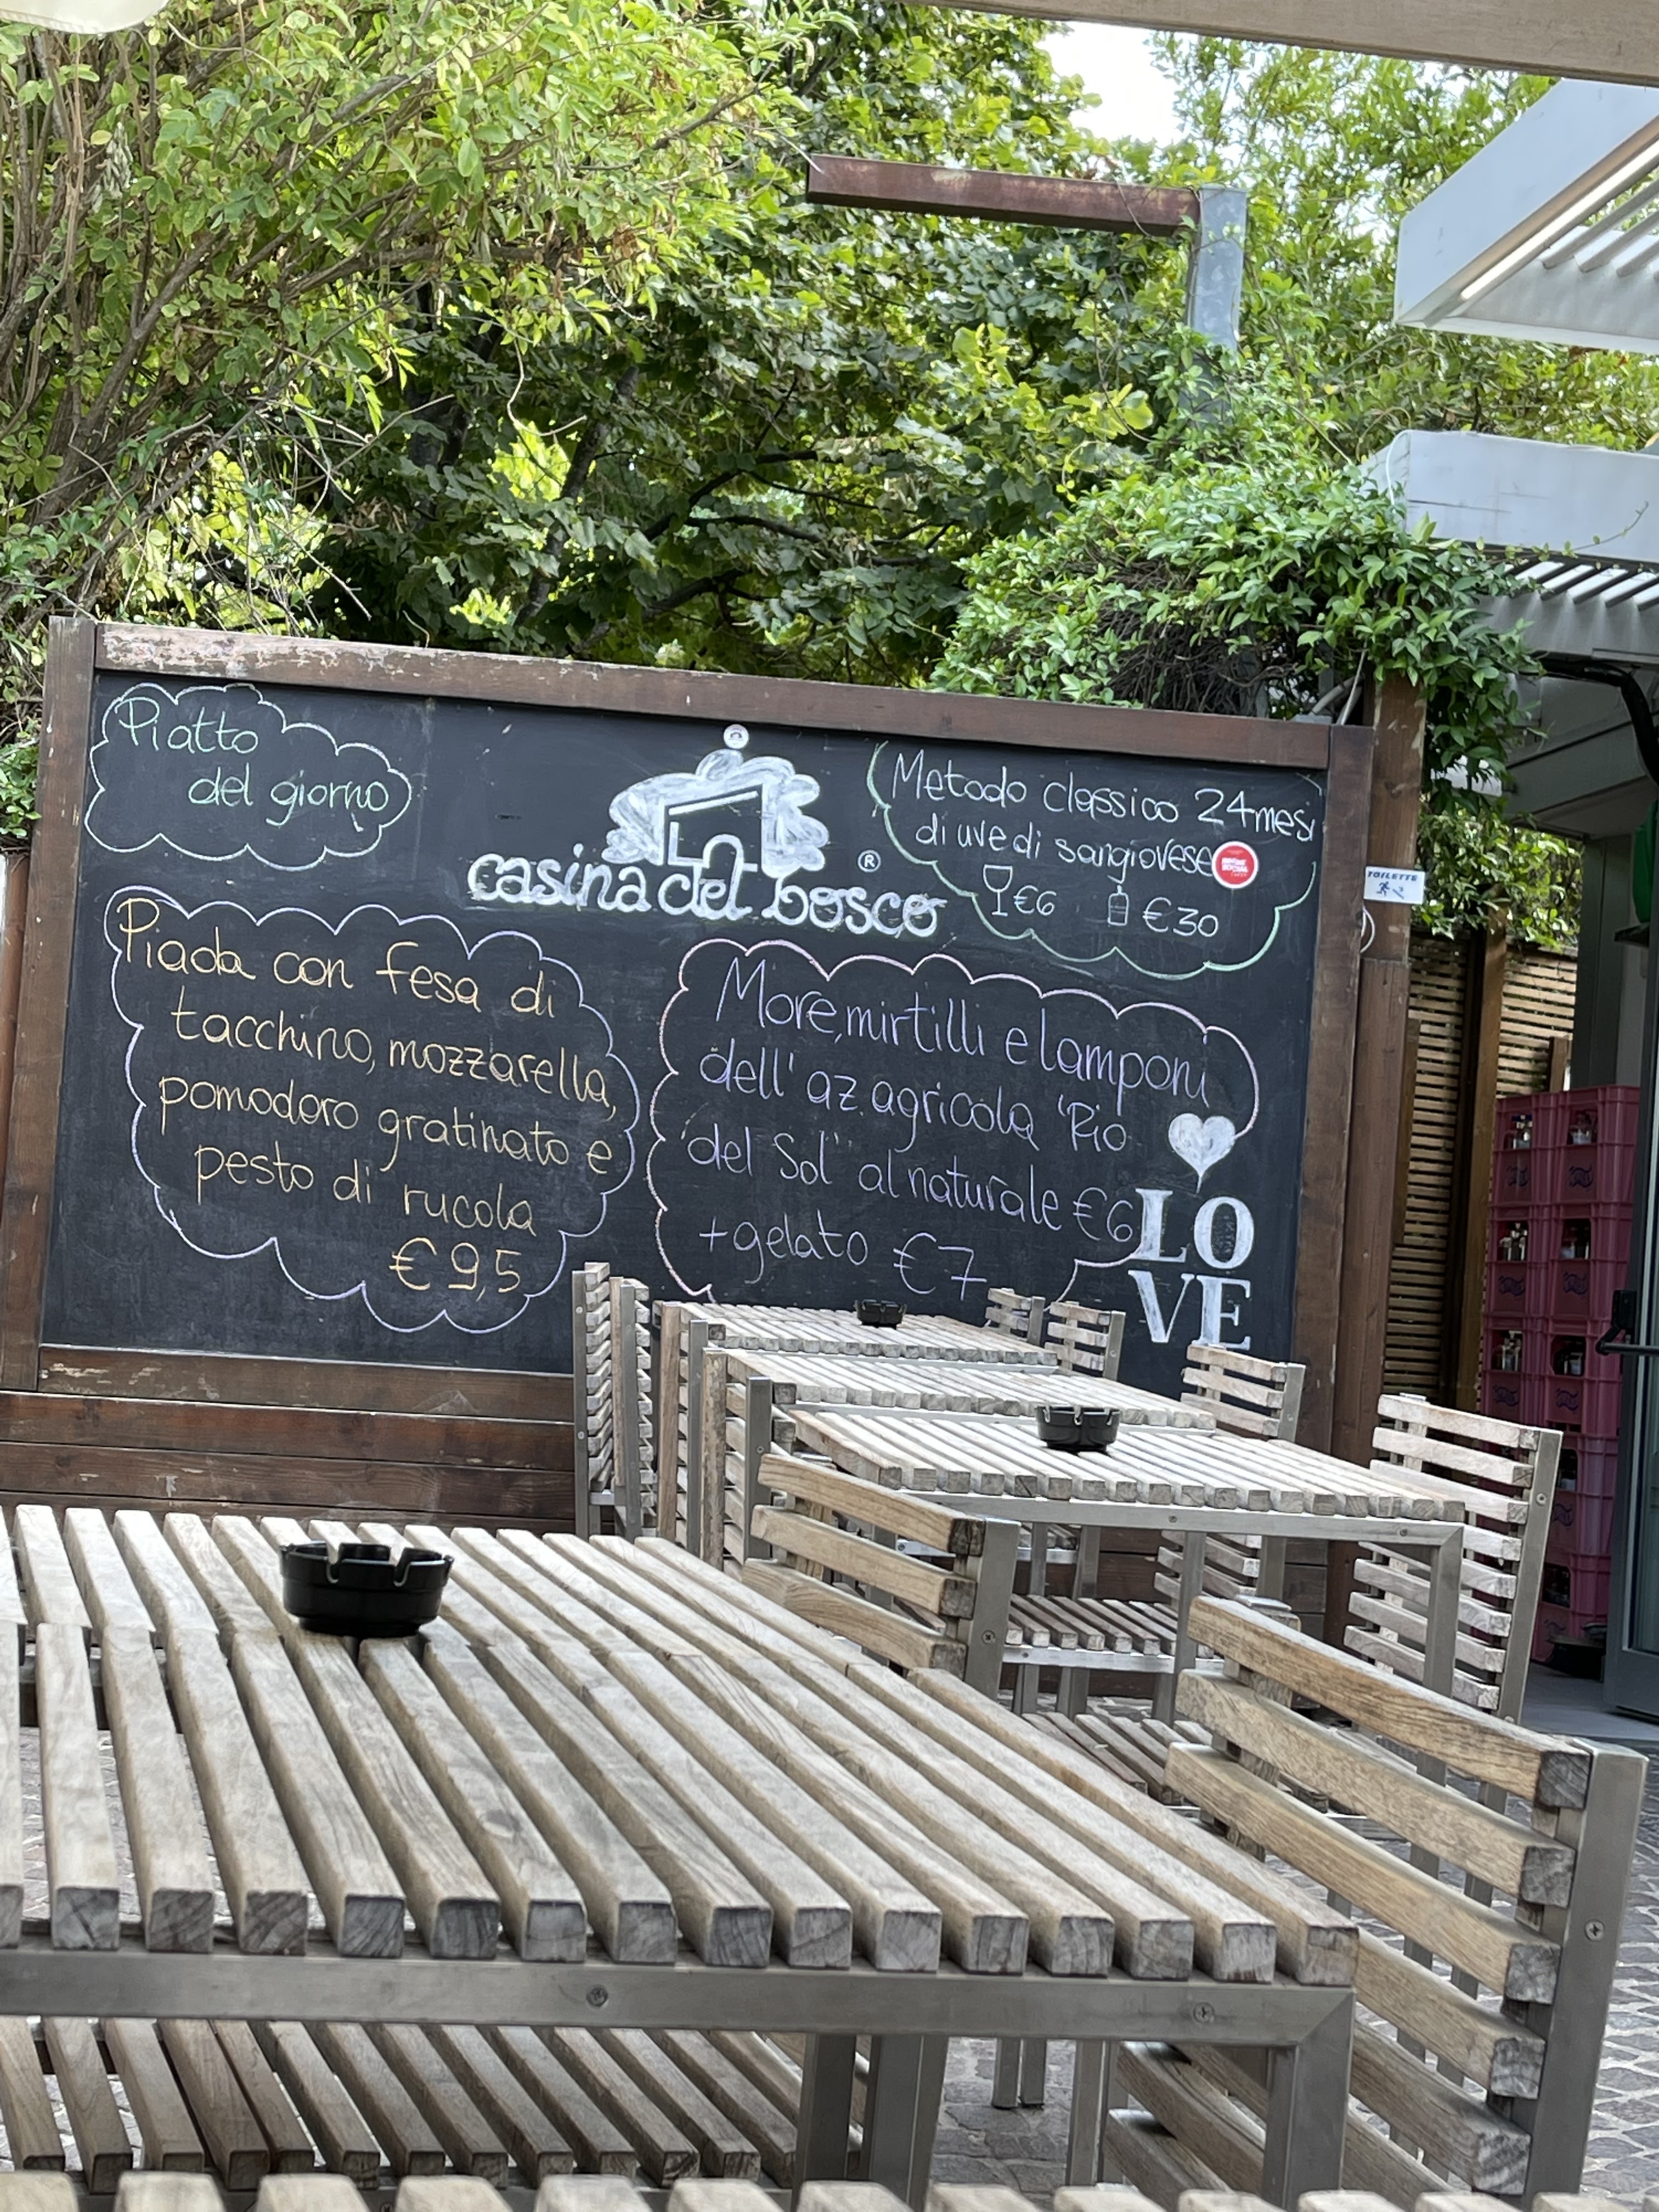 Piatto
del giorno
casina del bosco ®
Metodo classico 24 mesi
di uve di sangiovese
€6 €30
TOILETTE
Piada con fesa di
tacchino, mozzarella,
pomodoro gratinato e
pesto di rucola
€ 9,5
More, mirtilli e lamponi
dell' az. agricola 'Rio
del Sol' al naturale €6
+gelato €7
LO
VE